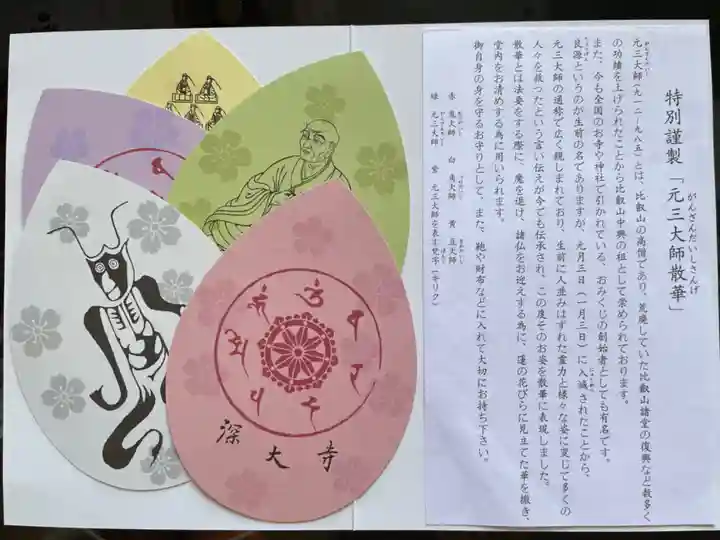 特別謹製「元三大師散華」
がんざんだいしさんげ
元三大師(九一二-九八五)とは、比叡山の高僧であり、荒廃していた比叡山諸堂の復興など数多く
がんざんだいし
の功績を上げられたことから比叡山中興の祖として崇められております。
また、今も全国のお寺や神社で引かれている、おみくじの創始者としても有名です。
良源というのが生前の名でありますが、元月三日(一月三日)に入滅されたことから、
りょうげん
にゅうめつ
元三大師の通称で広く親しまれており、生前に人並みはずれた霊力と様々な姿に変じて多くの
人々を救ったという言い伝えが今でも伝承され、この度そのお姿を散華に表現しました。
散華とは法要をする際に、魔を退け、諸仏をお迎えする為に、蓮の花びらに見立てた華を撒き、
堂内をお清めする為に用いられます。
御自身の身を守るお守りとして、また、鞄や財布などに入れて大切にお持ち下さい。
赤 鬼大師 白 角大師 黄 豆大師
緑 元三大師 紫 元三大師を表す梵字(キリク)
深大寺